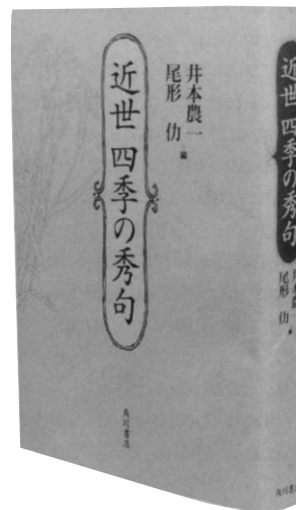 井本農一
尾形 仂 編
近世 四季の秀句
角川書店
近世 四季の秀句
井本農一
尾形 仂 編
角川書店